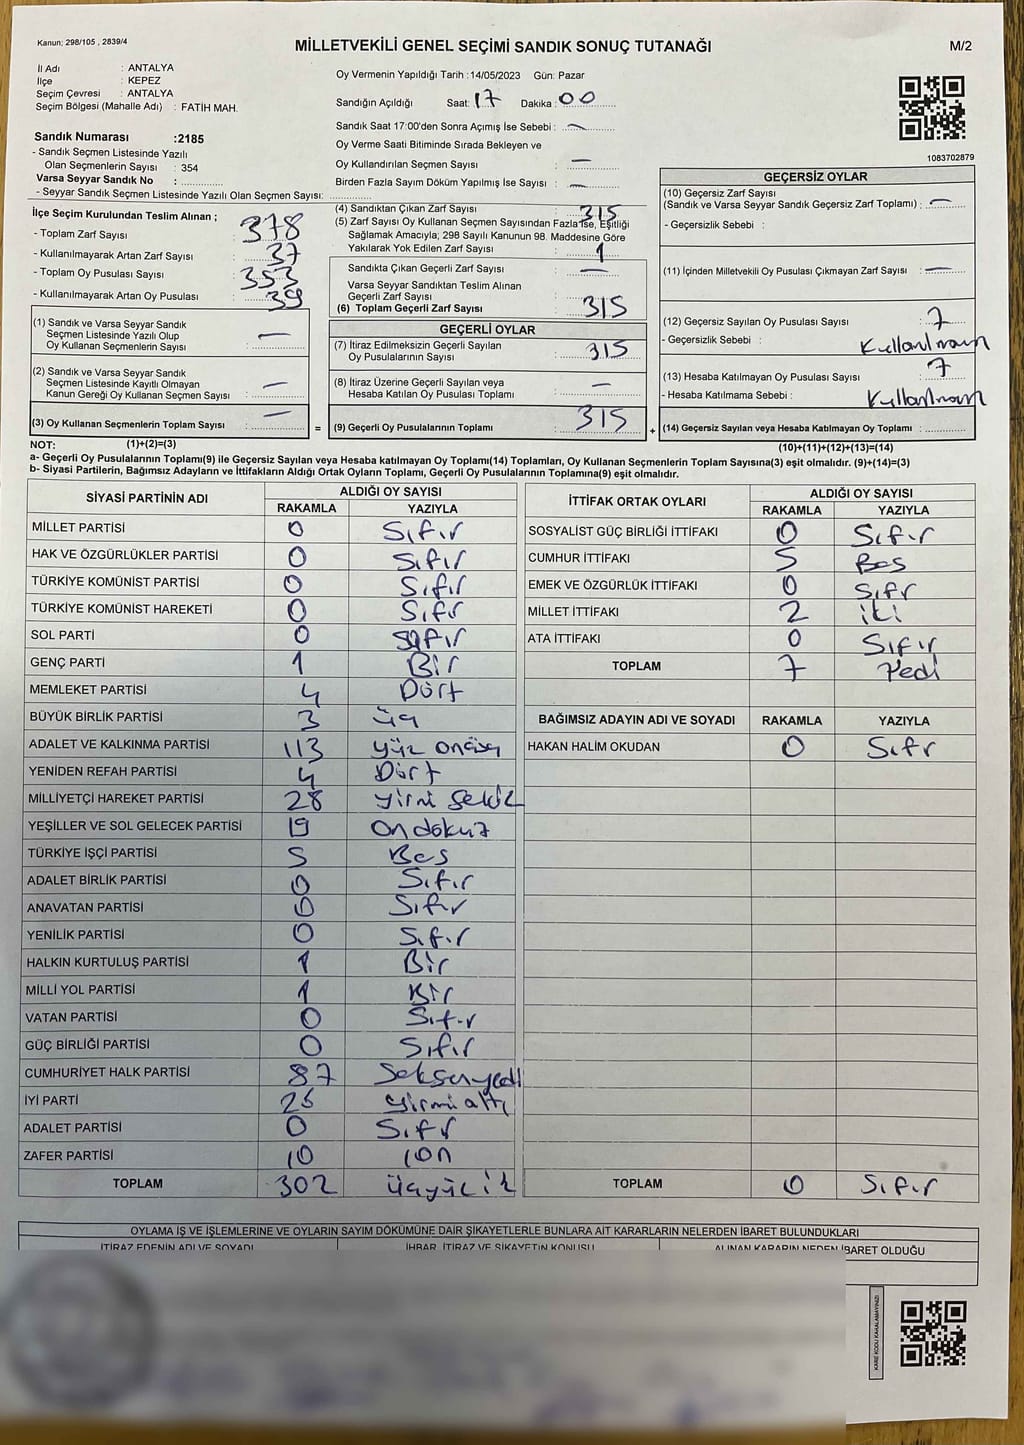 Kanun: 298/105 , 2839/4
MİLLETVEKİLİ GENEL SEÇİMİ SANDIK SONUÇ TUTANAĞI
M/2
İl Adı : ANTALYA
İlçe : KEPEZ
Seçim Çevresi : ANTALYA
Seçim Bölgesi (Mahalle Adı) : FATİH MAH.
Sandık Numarası :2185
- Sandık Seçmen Listesinde Yazılı
Olan Seçmenlerin Sayısı : 354
Varsa Seyyar Sandık No :
- Seyyar Sandık Seçmen Listesinde Yazılı Olan Seçmen Sayısı:
Oy Vermenin Yapıldığı Tarih :14/05/2023 Gün: Pazar
Sandığın Açıldığı Saat: 17 Dakika : 00
Sandık Saat 17:00'den Sonra Açımış İse Sebebi : —
Oy Verme Saati Bitiminde Sırada Bekleyen ve
Oy Kullandırılan Seçmen Sayısı : —
Birden Fazla Sayım Döküm Yapılmış İse Sayısı : —
1083702879
İlçe Seçim Kurulundan Teslim Alınan ;
- Toplam Zarf Sayısı : 378
- Kullanılmayarak Artan Zarf Sayısı : 37
- Toplam Oy Pusulası Sayısı : 353
- Kullanılmayarak Artan Oy Pusulası : 39
(1) Sandık ve Varsa Seyyar Sandık
Seçmen Listesinde Yazılı Olup
Oy Kullanan Seçmenlerin Sayısı : —
(2) Sandık ve Varsa Seyyar Sandık
Seçmen Listesinde Kayıtlı Olmayan
Kanun Gereği Oy Kullanan Seçmen Sayısı : —
(3) Oy Kullanan Seçmenlerin Toplam Sayısı : —
=
(4) Sandıktan Çıkan Zarf Sayısı : 315
(5) Zarf Sayısı Oy Kullanan Seçmen Sayısından Fazla İse, Eşitliği
Sağlamak Amacıyla; 298 Sayılı Kanunun 98. Maddesine Göre
Yakılarak Yok Edilen Zarf Sayısı : 1
Sandıkta Çıkan Geçerli Zarf Sayısı : —
Varsa Seyyar Sandıktan Teslim Alınan
Geçerli Zarf Sayısı :
(6) Toplam Geçerli Zarf Sayısı : 315
GEÇERLİ OYLAR
(7) İtiraz Edilmeksizin Geçerli Sayılan
Oy Pusulalarının Sayısı : 315
(8) İtiraz Üzerine Geçerli Sayılan veya
Hesaba Katılan Oy Pusulası Toplamı : —
(9) Geçerli Oy Pusulalarının Toplamı : 315
+
GEÇERSİZ OYLAR
(10) Geçersiz Zarf Sayısı
(Sandık ve Varsa Seyyar Sandık Geçersiz Zarf Toplamı) : —
- Geçersizlik Sebebi :
(11) İçinden Milletvekili Oy Pusulası Çıkmayan Zarf Sayısı : —
(12) Geçersiz Sayılan Oy Pusulası Sayısı : 7
- Geçersizlik Sebebi :
(13) Hesaba Katılmayan Oy Pusulası Sayısı : 7
- Hesaba Katılmama Sebebi :
(14) Geçersiz Sayılan veya Hesaba Katılmayan Oy Toplamı :
NOT: (1)+(2)=(3)
(10)+(11)+(12)+(13)=(14)
a- Geçerli Oy Pusulalarının Toplamı(9) ile Geçersiz Sayılan veya Hesaba katılmayan Oy Toplamı(14) Toplamları, Oy Kullanan Seçmenlerin Toplam Sayısına(3) eşit olmalıdır. (9)+(14)=(3)
b- Siyasi Partilerin, Bağımsız Adayların ve İttifakların Aldığı Ortak Oyların Toplamı, Geçerli Oy Pusulalarının Toplamına(9) eşit olmalıdır.
SİYASİ PARTİNİN ADI ALDIĞI OY SAYISI
RAKAMLA YAZIYLA
MİLLET PARTİSİ 0 Sıfır
HAK VE ÖZGÜRLÜKLER PARTİSİ 0 Sıfır
TÜRKİYE KOMÜNİST PARTİSİ 0 Sıfır
TÜRKİYE KOMÜNİST HAREKETİ 0 Sıfır
SOL PARTİ 0 Sıfır
GENÇ PARTİ 1 Bir
MEMLEKET PARTİSİ 4 Dört
BÜYÜK BİRLİK PARTİSİ 3 üç
ADALET VE KALKINMA PARTİSİ 113 yüz onüç
YENİDEN REFAH PARTİSİ 4 Dört
MİLLİYETÇİ HAREKET PARTİSİ 28 yirmi sekiz
YEŞİLLER VE SOL GELECEK PARTİSİ 19 on dokuz
TÜRKİYE İŞÇİ PARTİSİ 5 Bes
ADALET BİRLİK PARTİSİ 0 Sıfır
ANAVATAN PARTİSİ 0 Sıfır
YENİLİK PARTİSİ 0 Sıfır
HALKIN KURTULUŞ PARTİSİ 1 Bir
MİLLİ YOL PARTİSİ 1 Bir
VATAN PARTİSİ 0 Sıfır
GÜÇ BİRLİĞİ PARTİSİ 0 Sıfır
CUMHURİYET HALK PARTİSİ 87 Seksenyedi
İYİ PARTİ 26 yirmi altı
ADALET PARTİSİ 0 Sıfır
ZAFER PARTİSİ 10 on
TOPLAM 302 üçyüz iki
İTTİFAK ORTAK OYLARI ALDIĞI OY SAYISI
RAKAMLA YAZIYLA
SOSYALİST GÜÇ BİRLİĞİ İTTİFAKI 0 Sıfır
CUMHUR İTTİFAKI 5 Bes
EMEK VE ÖZGÜRLÜK İTTİFAKI 0 Sıfır
MİLLET İTTİFAKI 2 iki
ATA İTTİFAKI 0 Sıfır
TOPLAM 7 Yedi
BAĞIMSIZ ADAYIN ADI VE SOYADI RAKAMLA YAZIYLA
HAKAN HALİM OKUDAN 0 Sıfır
TOPLAM 0 Sıfır
OYLAMA İŞ VE İŞLEMLERİNE VE OYLARIN SAYIM DÖKÜMÜNE DAİR ŞİKAYETLERLE BUNLARA AİT KARARLARIN NELERDEN İBARET BULUNDUKLARI
İTİRAZ EDENİN ADI VE SOYADI İHBAR, İTİRAZ VE ŞİKAYETİN KONUSU ALINAN KARARIN NEDEN İBARET OLDUĞU
KARE KODU KARALAMAYINIZ!